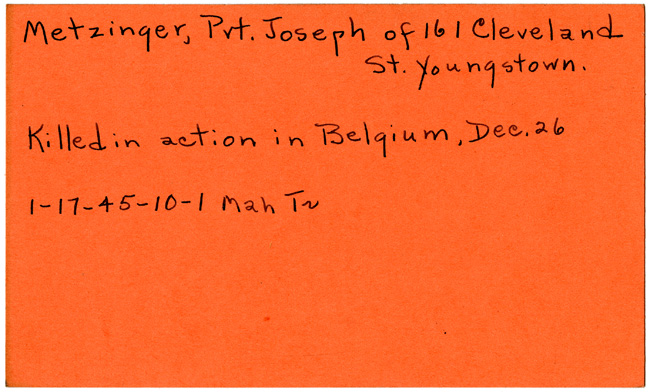 Metzinger, Pvt. Joseph of 161 Cleveland
St. Youngstown.
Killed in action in Belgium, Dec. 26
1-17-45-10-1 Mah Tr